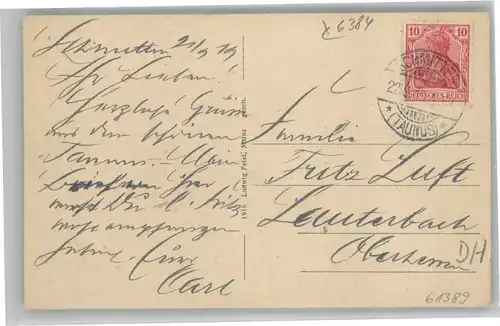 x 6384
10
DEUTSCHES REICH
SCHMITTEN
(TAUNUS)
Schmitten 21/9 19
Ihr Lieben!
Herzliche Grüsse
aus dem schönen
Taunus. Mein
hier
wirst Du d. Fritz
wohl empfangen
haben. Euer
Carl
1918 Ludwig Feist, Mainz
Familie
Fritz Luft
Lauterbach
Oberhessen
D/H
61389